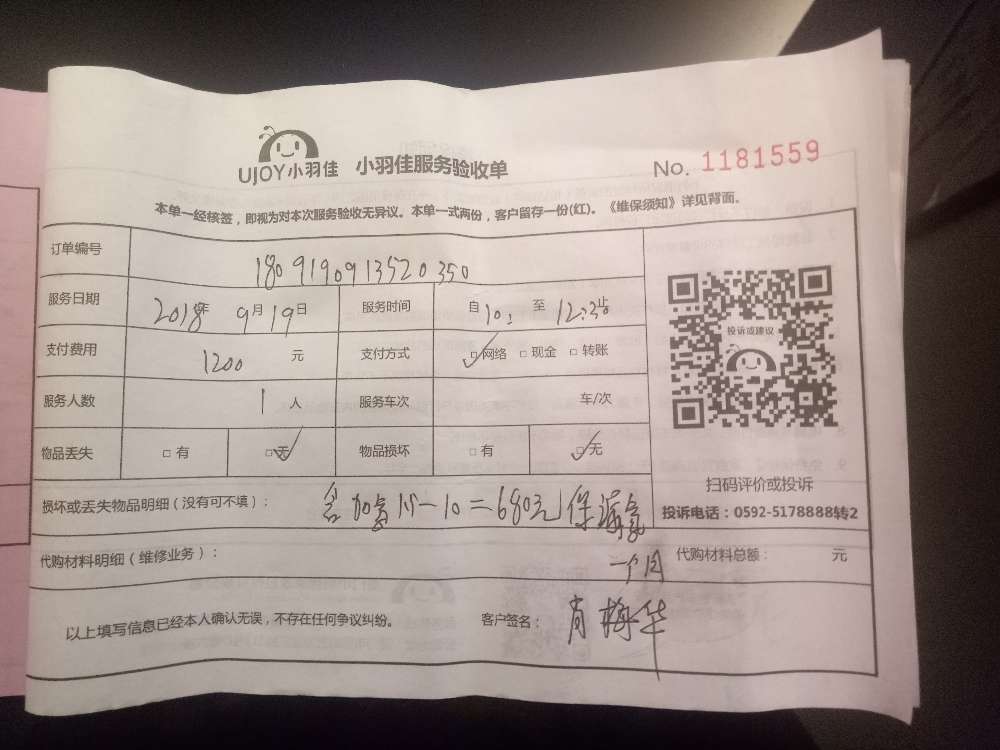 UJOY小羽佳 小羽佳服务验收单 No. 1181559
本单一经核签，即视为对本次服务验收无异议。本单一式两份，客户留存一份(红)。《维保须知》详见背面。
订单编号 180919091352035​0
服务日期 2018年 9月19日 服务时间 自10: 至 12:30止
支付费用 1200 元 支付方式 □网络 □现金 □转账
服务人数 1人 服务车次 车/次
物品丢失 □有 □无 物品损坏 □有 □无
投诉或建议
扫码评价或投诉
投诉电话：0592-5178888转2
损坏或丢失物品明细（没有可不填）： 含加氟15-10=680元保漏氟
一个月
代购材料明细（维修业务）： 代购材料总额： 元
以上填写信息已经本人确认无误，不存在任何争议纠纷。 客户签名： 肖梅华